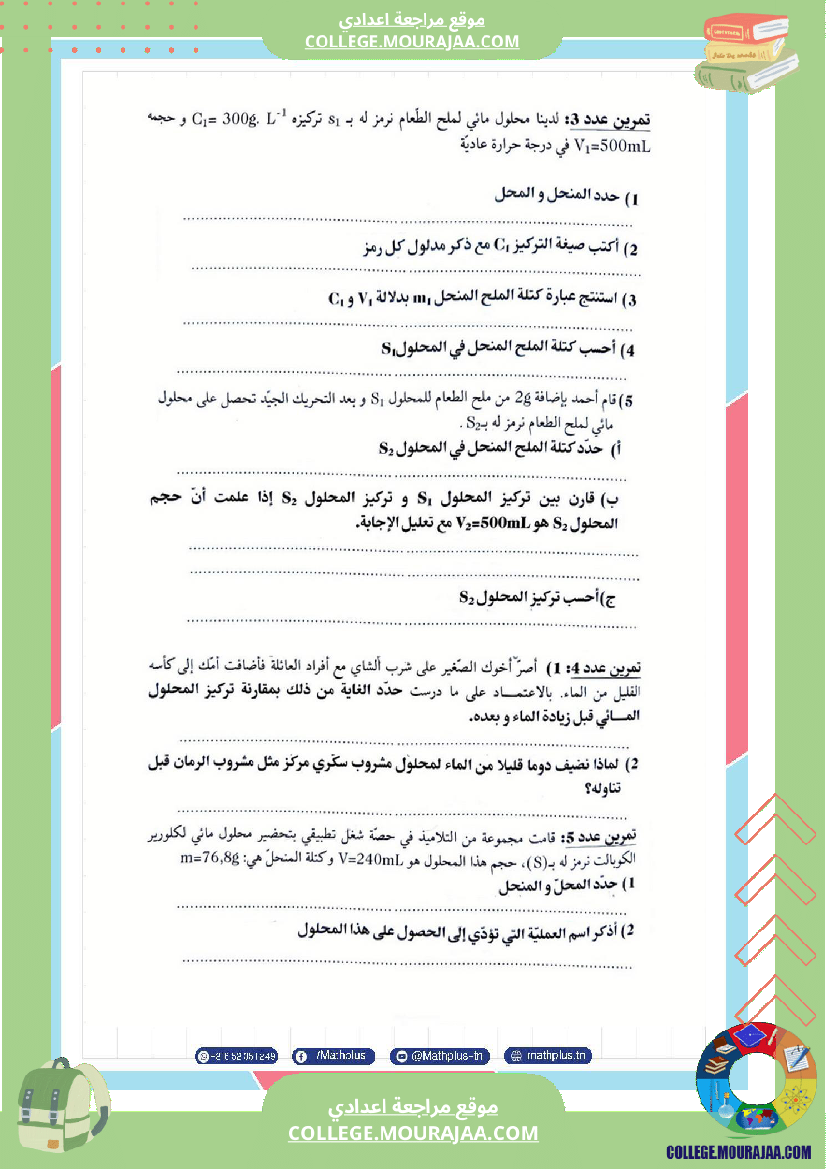 موقع مراجعة اعدادي
COLLEGE.MOURAJAA.COM
تمرين عدد 3: لدينا محلول مائي لملح الطّعام نرمز له بـ s₁ تركيزه C₁= 300g. L⁻¹ و حجمه
V₁=500mL في درجة حرارة عاديّة
1) حدد المنحل و المحل
2) أكتب صيغة التركيز C₁ مع ذكر مدلول كل رمز
3) استنتج عبارة كتلة الملح المنحل m₁ بدلالة V₁ و C₁
4) أحسب كتلة الملح المنحل في المحلول S₁
5) قام أحمد بإضافة 2g من ملح الطعام للمحلول S₁ و بعد التحريك الجيّد تحصل على محلول
مائي لملح الطعام نرمز له بـ S₂ .
أ) حدّد كتلة الملح المنحل في المحلول S₂
ب) قارن بين تركيز المحلول S₁ و تركيز المحلول S₂ إذا علمت أنّ حجم
المحلول S₂ هو V₂=500mL مع تعليل الإجابة.
ج) أحسب تركيز المحلول S₂
تمرين عدد 4: 1) أصرّ أخوك الصّغير على شرب الشاي مع أفراد العائلة فأضافت أمّك إلى كأسه
القليل من الماء. بالاعتمـــاد على ما درست حدّد الغاية من ذلك بمقارنة تركيز المحلول
المــائي قبل زيادة الماء و بعده.
2) لماذا نضيف دوما قليلا من الماء لمحلول مشروب سكّري مركّز مثل مشروب الرمان قبل
تناوله؟
تمرين عدد 5: قامت مجموعة من التلاميذ في حصّة شغل تطبيقي بتحضير محلول مائي لكلورير
الكوبالت نرمز له بـ(S)، حجم هذا المحلول هو V=240mL و كتلة المنحلّ هي: m=76,8g
1) حدّد المحلّ و المنحل
2) أذكر اسم العمليّة التي تؤدّي إلى الحصول على هذا المحلول
/Mathplus
@Mathplus-tn
mathplus.tn
موقع مراجعة اعدادي
COLLEGE.MOURAJAA.COM
COLLEGE.MOURAJAA.COM